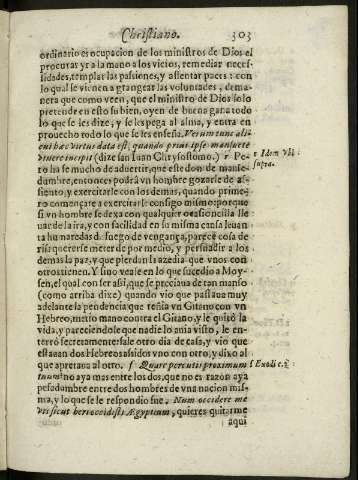 Christiano. 303
ordinario es ocupacion de los ministros de Dios el
procurar yr a la mano a los vicios, remediar necef-
sidades, templar las passiones, y assentar pazes: con
lo qual se vienen a grangear las voluntades, de ma-
nera que como veen, que el ministro de Dios solo
pretende en esto su bien, oyen de buena gana todo
lo que se les dize, y se les pega al alma, y entra en
prouecho todo lo que se les enseña. Verum tunc ali-
cui hæc virtus data est, quando prius ipse mansuete
viuere incepit (dize san Iuan Chrysostomo.) r Pe-
r Idem vbi
supra.
ro ha se mucho de aduertir, que este don de manse-
dumbre, entonces podrà vn hombre gozarle de as-
siento, y exercitarle con los demas, quando prime-
ro començare a exercitarle consigo mismo: porque
si vn hombre se dexa con qualquier ocasioncilla lle
uar de la ira, y con facilidad en su misma causa leuan
ta humaredas de fuego de vengança, parece cosa de
risa quererse meter de por medio, y persuadir a los
demas la paz, y que pierdan la azedia que vnos con
otros tienen. Y sino vease en lo que sucedio a Moy-
sen, el qual con ser assi, que se preciaua de tan manso
(como arriba dixe) quando vio que passaua muy
adelante la pendencia que tenia vn Gitano con vn
Hebreo, metio mano contra el Gitano, y le quitò la
vida, y pareciendole que nadie lo auia visto, le en-
terrò secretamente: sale otro dia de casa, y vio que
estauan dos Hebreos asidos vno con otro, y dixo al
que apretaua al otro. s Quare percutis proximum
s Exodi c. 2.
tuum? no aya mas entre los dos, que no es razon aya
pesadumbre entre dos hombres de vna nacion mis-
ma, y lo que se le respondio fue. Num occidere me
vis sicut heri occidisti Ægyptium, quieres quitarme
aqui